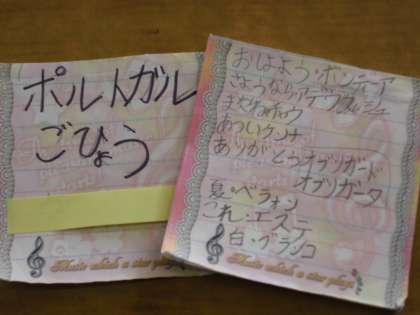 ポルトガル
ごひょう
おはよう・ボンディーア
さようなら・アデウジュ
またねチャウ
あついクンナ
ありがとうオブリガード
オブリガータ
夏・ベラォン
これ・エステ
白・ブランコ
Music which a star plays